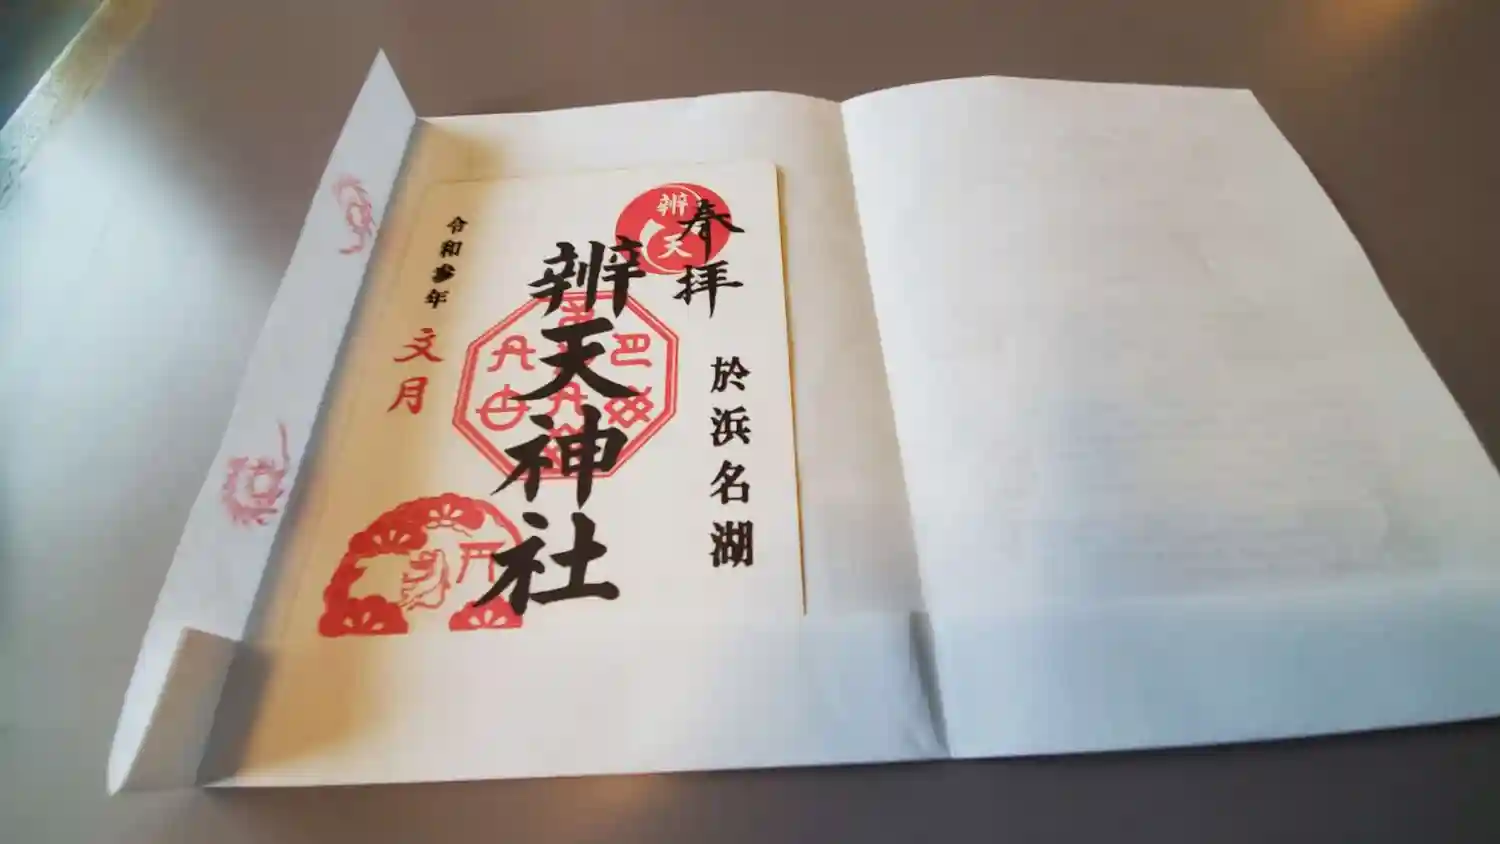 奉拝
辨天
於浜名湖
辨天神社
令和参年
文月